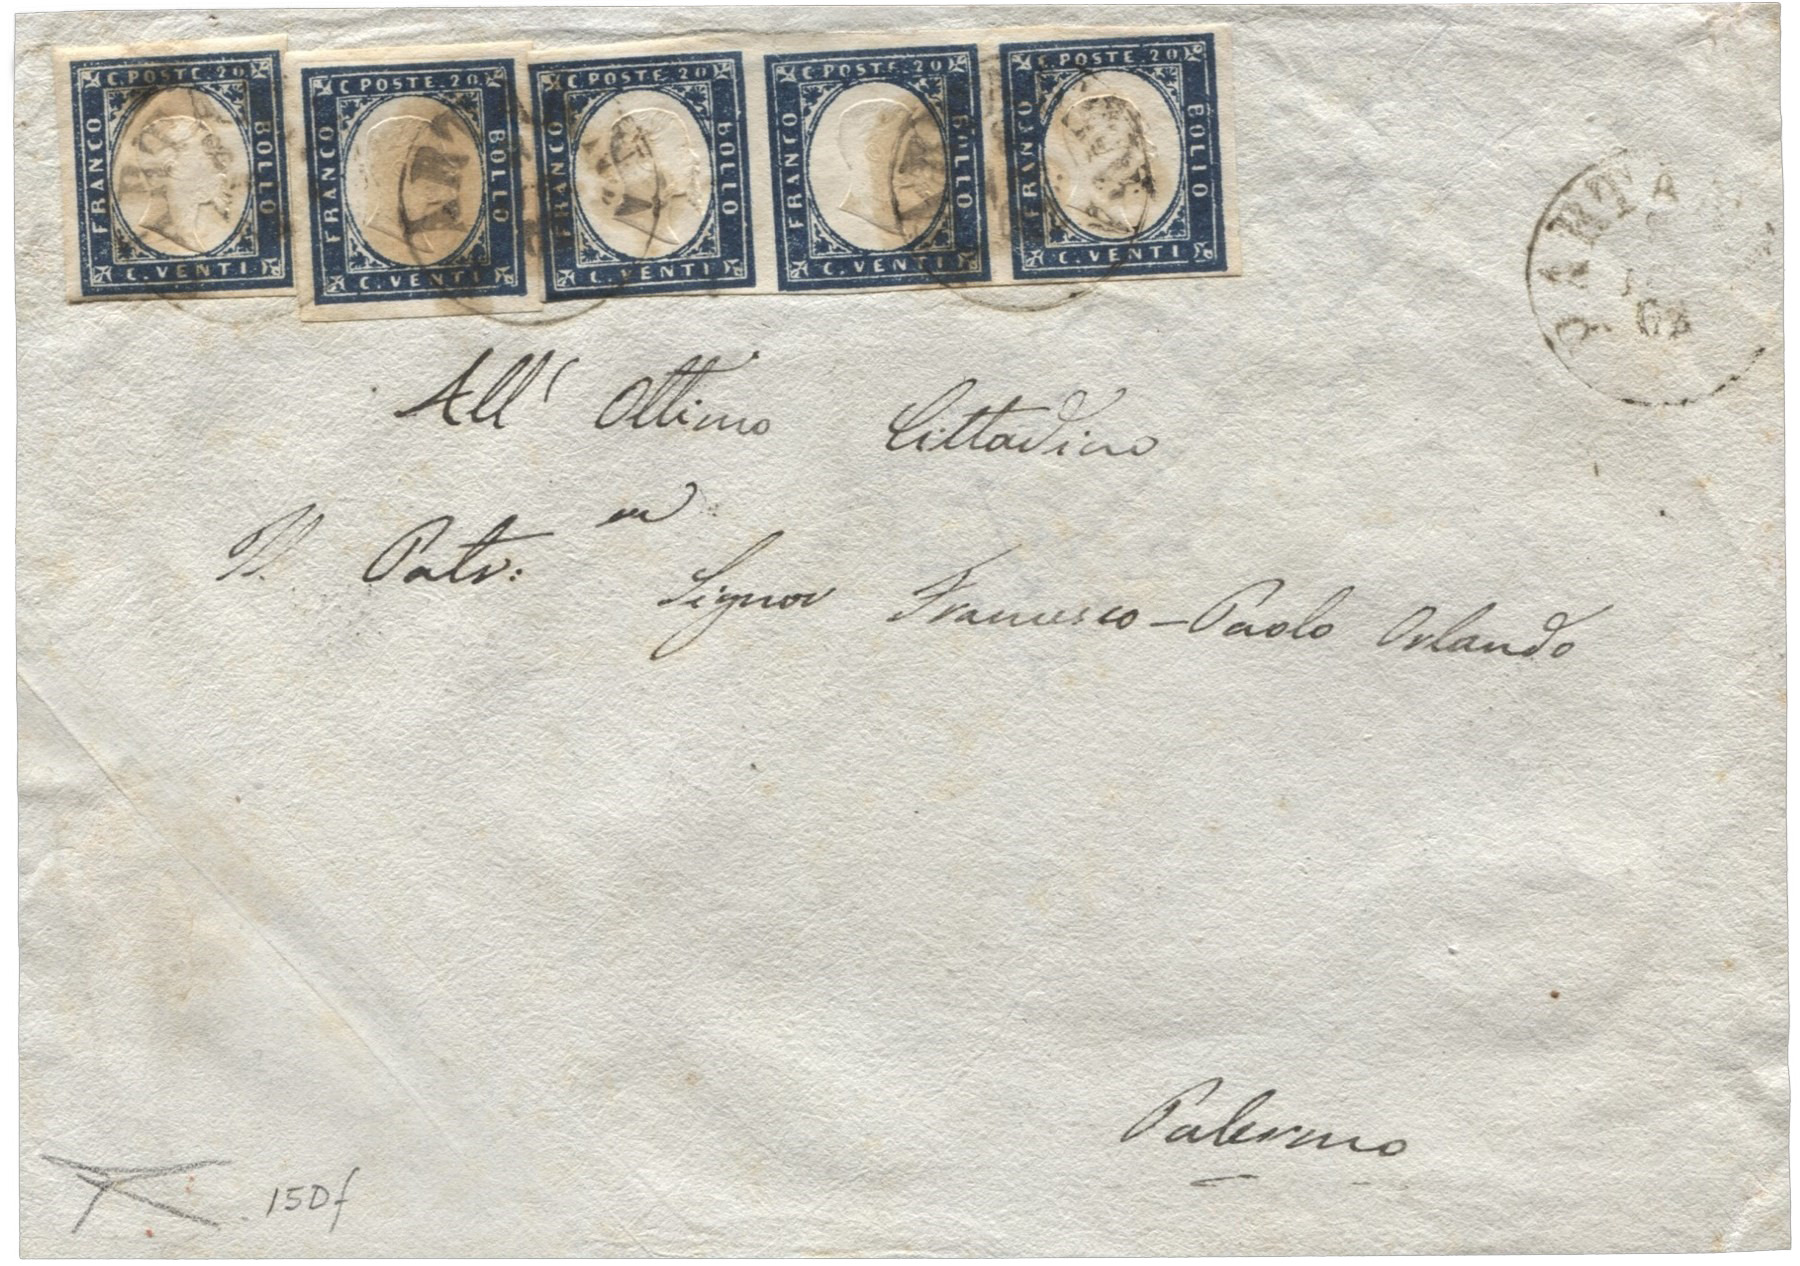 C. POSTE. 20 C. POSTE. 20 C. POSTE. 20 C. POSTE. 20 C. POSTE. 20
FRANCO BOLLO FRANCO BOLLO FRANCO BOLLO FRANCO BOLLO FRANCO BOLLO
C. VENTI. C. VENTI. C. VENTI. C. VENTI. C. VENTI.
63
All' Ottimo Cittadino
Patr: Signor Francesco-Paolo Orlando
Palermo
15Df